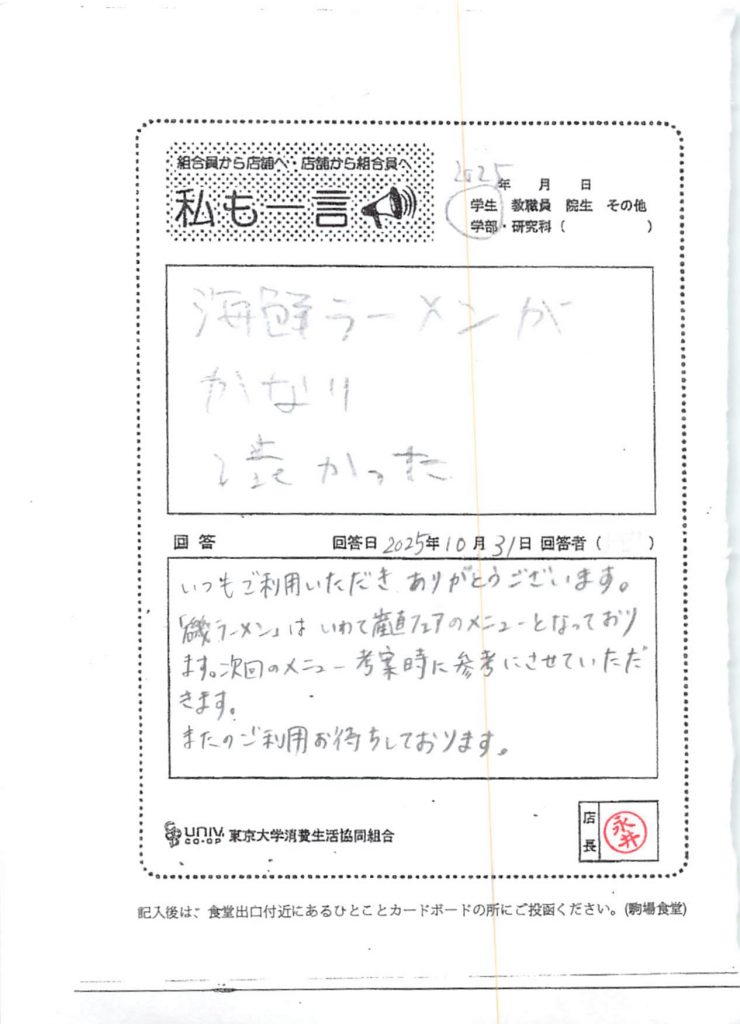 組合員から店舗へ・店舗から組合員へ
私も一言
2025年 月 日
学生 教職員 院生 その他
学部・研究科( )
海鮮ラーメンが
かなり
渋かった
回答 回答日2025年10月31日 回答者( )
いつもご利用いただき ありがとうございます。
「磯ラーメン」は いわて産直フェアのメニューとなっており
ます。次回のメニュー考案時に参考にさせていただ
きます。
またのご利用お待ちしております。
UNIV. CO-OP 東京大学消費生活協同組合
店長 永井
記入後は、食堂出口付近にあるひとことカードボードの所にご投函ください。(駒場食堂)